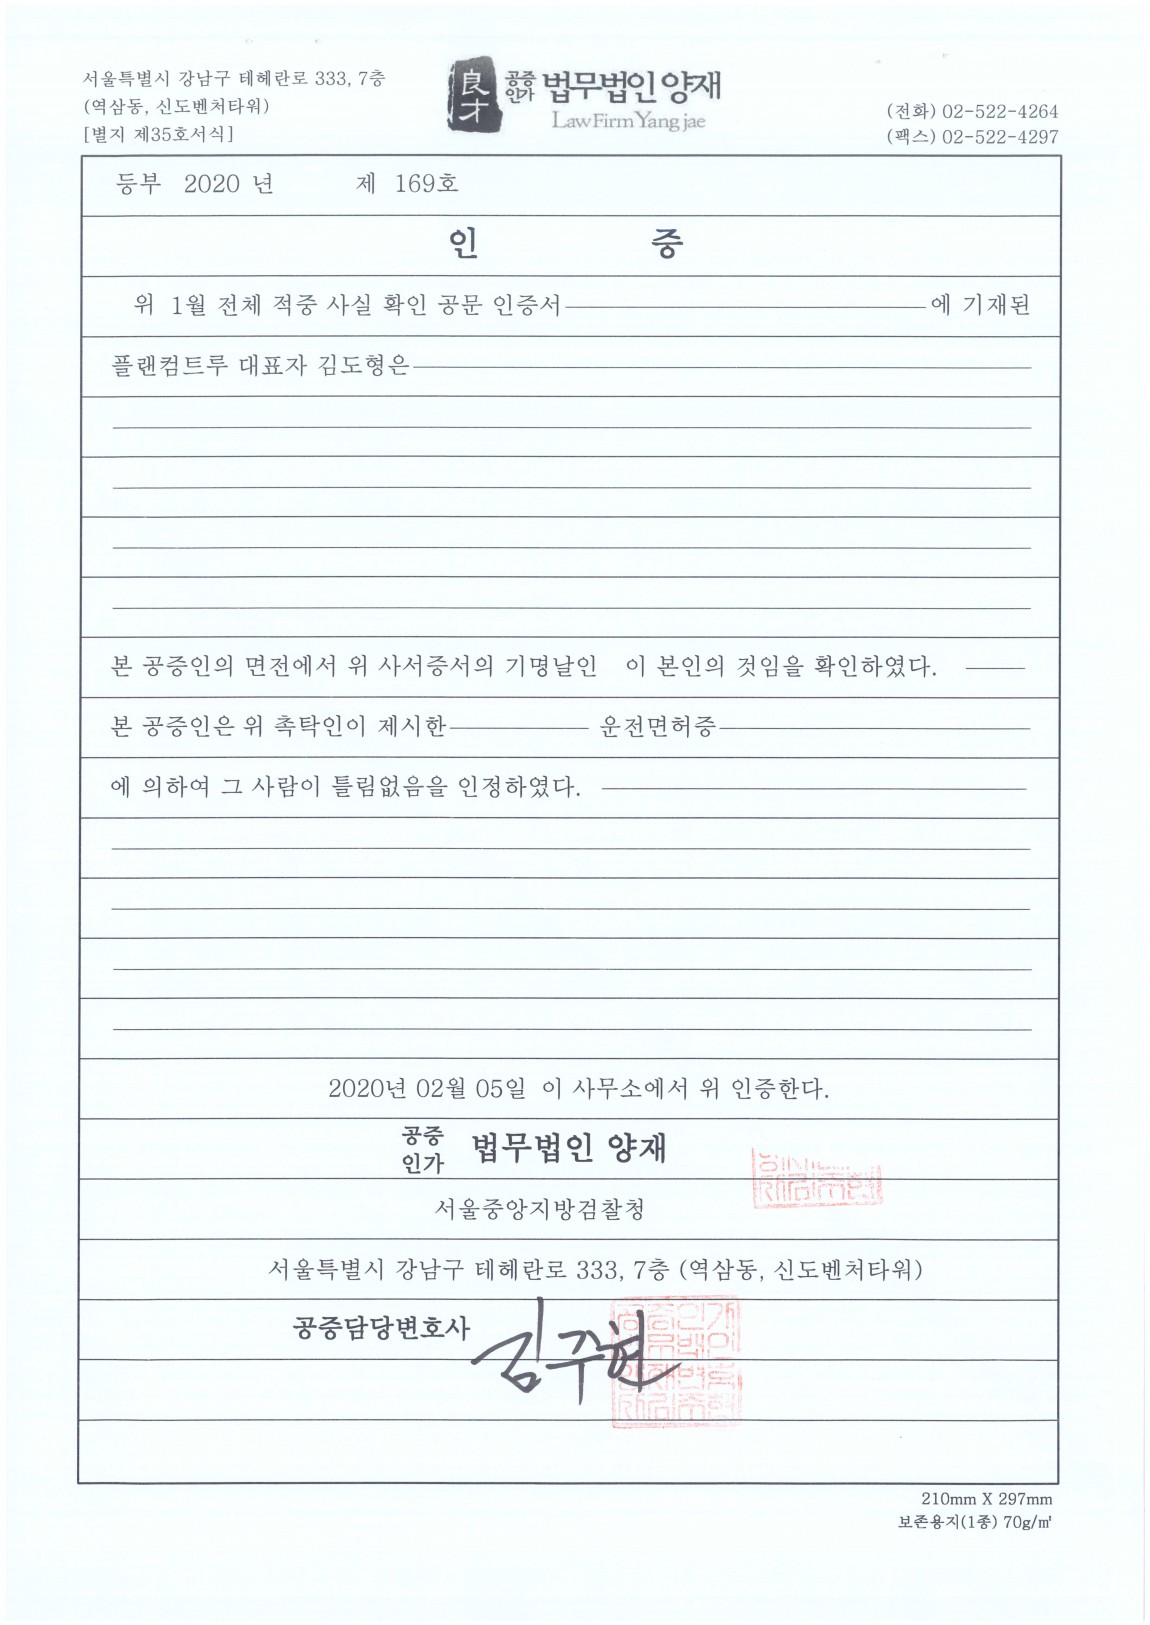 서울특별시 강남구 테헤란로 333, 7층
(역삼동, 신도벤처타워)
[별지 제35호서식]
良才
공증인가 법무법인 양재
Law Firm Yang jae
(전화) 02-522-4264
(팩스) 02-522-4297
등부 2020 년 제 169호
인 증
위 1월 전체 적중 사실 확인 공문 인증서 에 기재된
플랜컴트루 대표자 김도형은
본 공증인의 면전에서 위 사서증서의 기명날인 이 본인의 것임을 확인하였다.
본 공증인은 위 촉탁인이 제시한 운전면허증
에 의하여 그 사람이 틀림없음을 인정하였다.
2020년 02월 05일 이 사무소에서 위 인증한다.
공증인가 법무법인 양재
서울중앙지방검찰청
서울특별시 강남구 테헤란로 333, 7층 (역삼동, 신도벤처타워)
공증담당변호사 김주현
210mm X 297mm
보존용지(1종) 70g/㎡